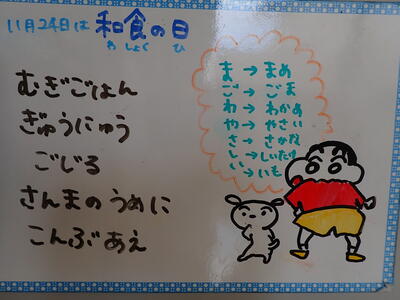 11月24日は 和食の日
わ しょく ひ
むぎごはん
ぎゅうにゅう
ごじる
さんまのうめに
こんぶあえ
ま→まめ
ご→ごま
わ→わかめ
や→やさい
さ→さかな
し→しいたけ
い→いも